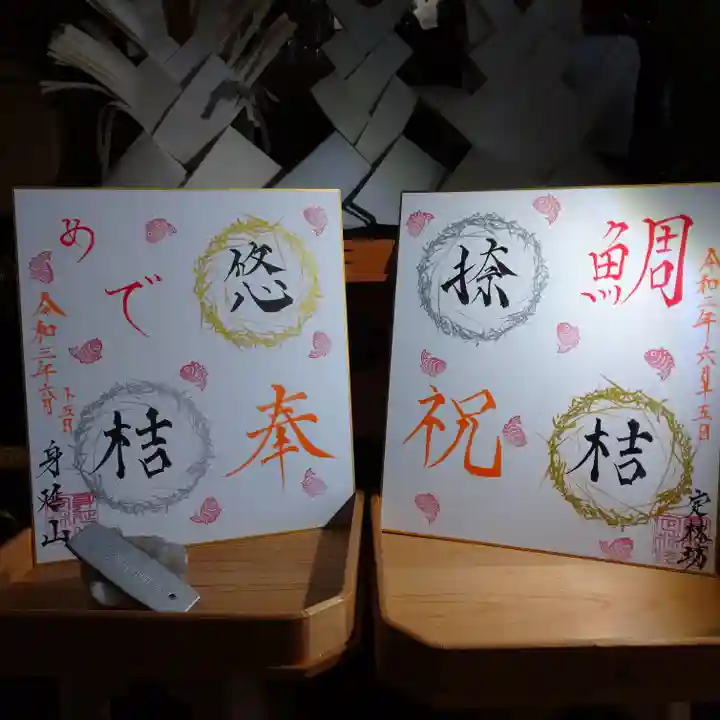 鯛
祝
捺
桔
令和二年六月五日
定林坊
めで
悠
奉
桔
令和三年六月
十五日
身延山